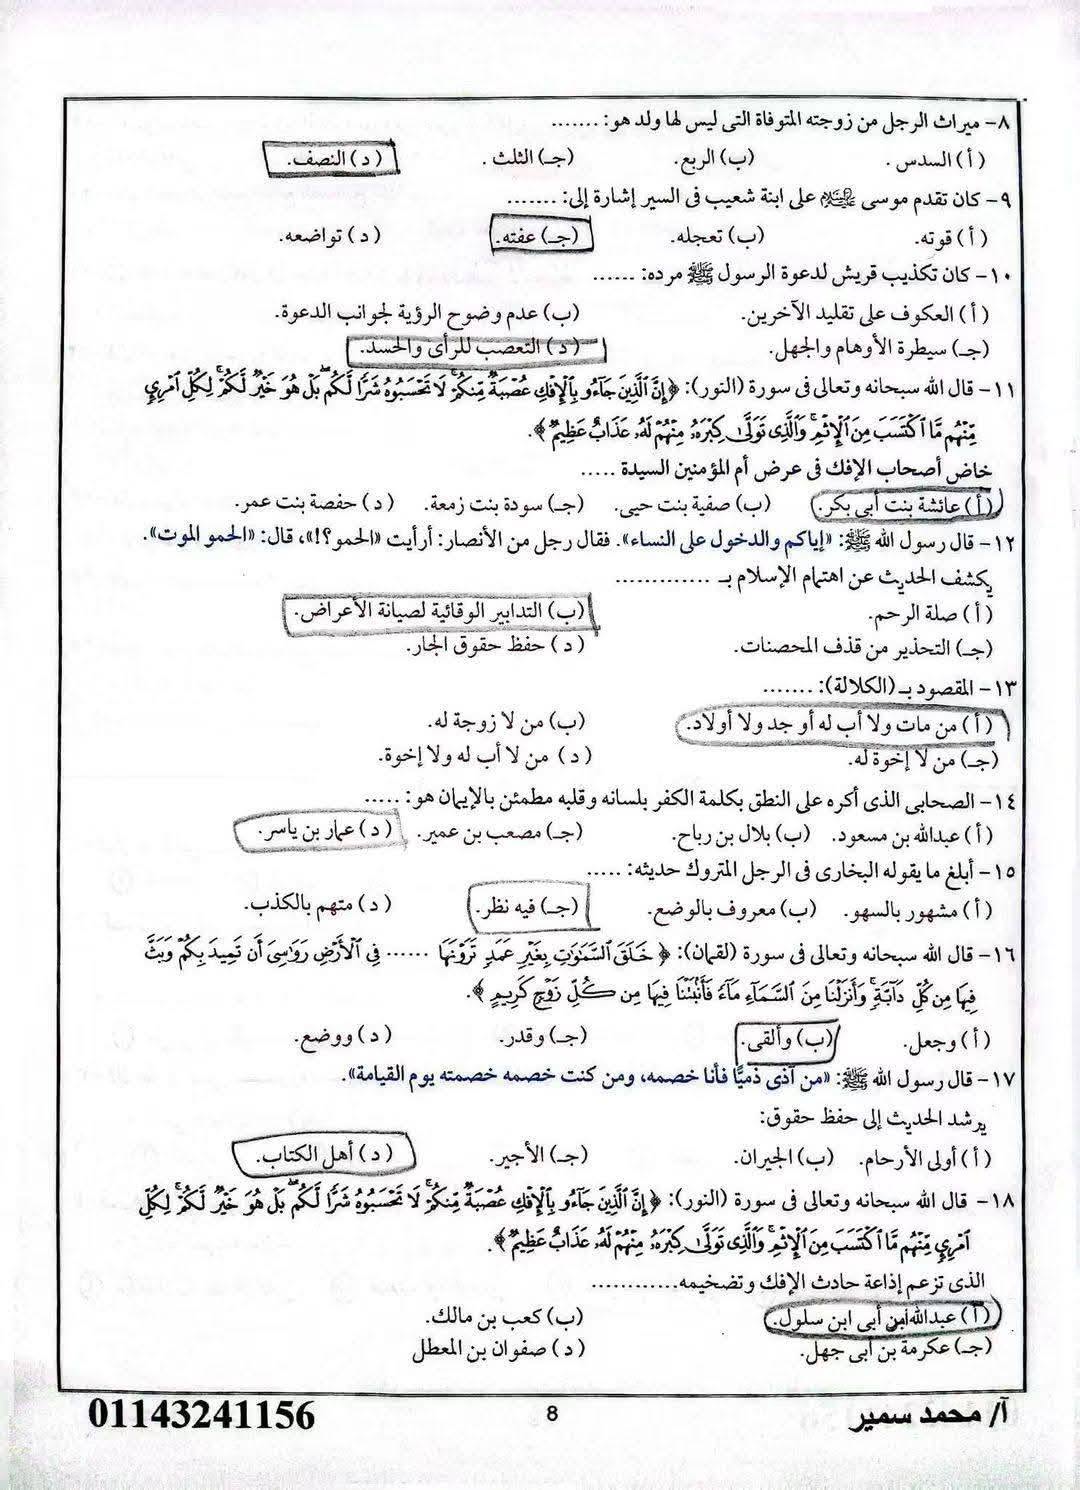 ٨- ميراث الرجل من زوجته المتوفاة التى ليس لها ولد هو: .......
(أ) السدس. (ب) الربع. (جـ) الثلث. (د) النصف.
٩- كان تقدم موسى ﷺ على ابنة شعيب فى السير إشارة إلى: .......
(أ) قوته. (ب) تعجله. (جـ) عفته. (د) تواضعه.
١٠- كان تكذيب قريش لدعوة الرسول ﷺ مرده: ......
(أ) العكوف على تقليد الآخرين. (ب) عدم وضوح الرؤية لجوانب الدعوة.
(جـ) سيطرة الأوهام والجهل. (د) التعصب للرأى والحسد.
١١- قال الله سبحانه وتعالى فى سورة (النور): ﴿إِنَّ ٱلَّذِينَ جَآءُو بِٱلْإِفْكِ عُصْبَةٌ مِّنكُمْ ۚ لَا تَحْسَبُوهُ شَرًّا لَّكُم ۖ بَلْ هُوَ خَيْرٌ لَّكُمْ ۚ لِكُلِّ ٱمْرِئٍ
مِّنْهُم مَّا ٱكْتَسَبَ مِنَ ٱلْإِثْمِ ۚ وَٱلَّذِى تَوَلَّىٰ كِبْرَهُۥ مِنْهُمْ لَهُۥ عَذَابٌ عَظِيمٌ﴾.
خاض أصحاب الإفك فى عرض أم المؤمنين السيدة .....
(أ) عائشة بنت أبى بكر. (ب) صفية بنت حيى. (جـ) سودة بنت زمعة. (د) حفصة بنت عمر.
١٢- قال رسول الله ﷺ: «إياكم والدخول على النساء». فقال رجل من الأنصار: أرأيت «الحمو؟!»، قال: «الحمو الموت».
يكشف الحديث عن اهتمام الإسلام بـ .............
(أ) صلة الرحم. (ب) التدابير الوقائية لصيانة الأعراض.
(جـ) التحذير من قذف المحصنات. (د) حفظ حقوق الجار.
١٣- المقصود بـ (الكلالة): .......
(أ) من مات ولا أب له أو جد ولا أولاد. (ب) من لا زوجة له.
(جـ) من لا إخوة له. (د) من لا أب له ولا إخوة.
١٤- الصحابى الذى أكره على النطق بكلمة الكفر بلسانه وقلبه مطمئن بالإيمان هو: .....
(أ) عبدالله بن مسعود. (ب) بلال بن رباح. (جـ) مصعب بن عمير. (د) عمار بن ياسر.
١٥- أبلغ ما يقوله البخارى فى الرجل المتروك حديثه: .....
(أ) مشهور بالسهو. (ب) معروف بالوضع. (جـ) فيه نظر. (د) متهم بالكذب.
١٦- قال الله سبحانه وتعالى فى سورة (لقمان): ﴿خَلَقَ ٱلسَّمَٰوَٰتِ بِغَيْرِ عَمَدٍ تَرَوْنَهَا ...... فِى ٱلْأَرْضِ رَوَٰسِىَ أَن تَمِيدَ بِكُمْ وَبَثَّ
فِيهَا مِن كُلِّ دَآبَّةٍ ۚ وَأَنزَلْنَا مِنَ ٱلسَّمَآءِ مَآءً فَأَنۢبَتْنَا فِيهَا مِن كُلِّ زَوْجٍ كَرِيمٍ﴾.
(أ) وجعل. (ب) وألقى. (جـ) وقدر. (د) ووضع.
١٧- قال رسول الله ﷺ: «من آذى ذميًّا فأنا خصمه، ومن كنت خصمه خصمته يوم القيامة».
يرشد الحديث إلى حفظ حقوق:
(أ) أولى الأرحام. (ب) الجيران. (جـ) الأجير. (د) أهل الكتاب.
١٨- قال الله سبحانه وتعالى فى سورة (النور): ﴿إِنَّ ٱلَّذِينَ جَآءُو بِٱلْإِفْكِ عُصْبَةٌ مِّنكُمْ ۚ لَا تَحْسَبُوهُ شَرًّا لَّكُم ۖ بَلْ هُوَ خَيْرٌ لَّكُمْ ۚ لِكُلِّ
ٱمْرِئٍ مِّنْهُم مَّا ٱكْتَسَبَ مِنَ ٱلْإِثْمِ ۚ وَٱلَّذِى تَوَلَّىٰ كِبْرَهُۥ مِنْهُمْ لَهُۥ عَذَابٌ عَظِيمٌ﴾.
الذى تزعم إذاعة حادث الإفك وتضخيمه............
(أ) عبدالله بن أبى ابن سلول. (ب) كعب بن مالك.
(جـ) عكرمة بن أبى جهل. (د) صفوان بن المعطل
أ/ محمد سمير 8 01143241156